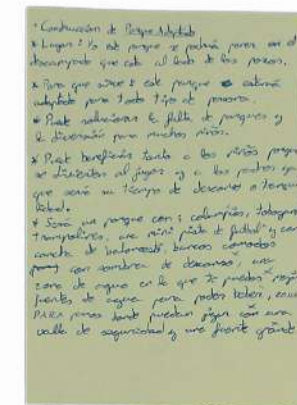 * Construcción de Parque Adaptado
* Lugar: Yo este parque se podría poner en el
descampado que está al lado de las pistas.
* Para que sirve: este parque estaría
adaptado para todo tipo de persona.
* Puede solucionar la falta de parques y
la diversión para muchos niños.
* Puede beneficiar tanto a los niños porque
se divierten al jugar y a los padres
que será su tiempo de descanso o tranqui
lidad.
* Será un parque con: columpios, tobogan
trampolines, una mini pista de futbol y
cancha de baloncesto, bancos comodos
con sombra de descanso, una
zona de agua en la que te puedas
fuentes de agua para poder beber,
PARA perros donde puedan jugar con una
valla de seguridad y una fuente grande